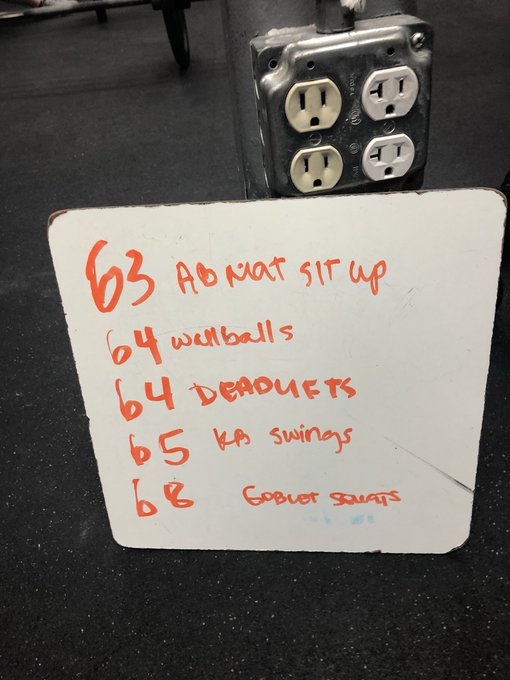 63 AB MAT SIT UP
64 wallballs
64 DEADLIFTS
65 KB swings
68 GOBLET SQUATS